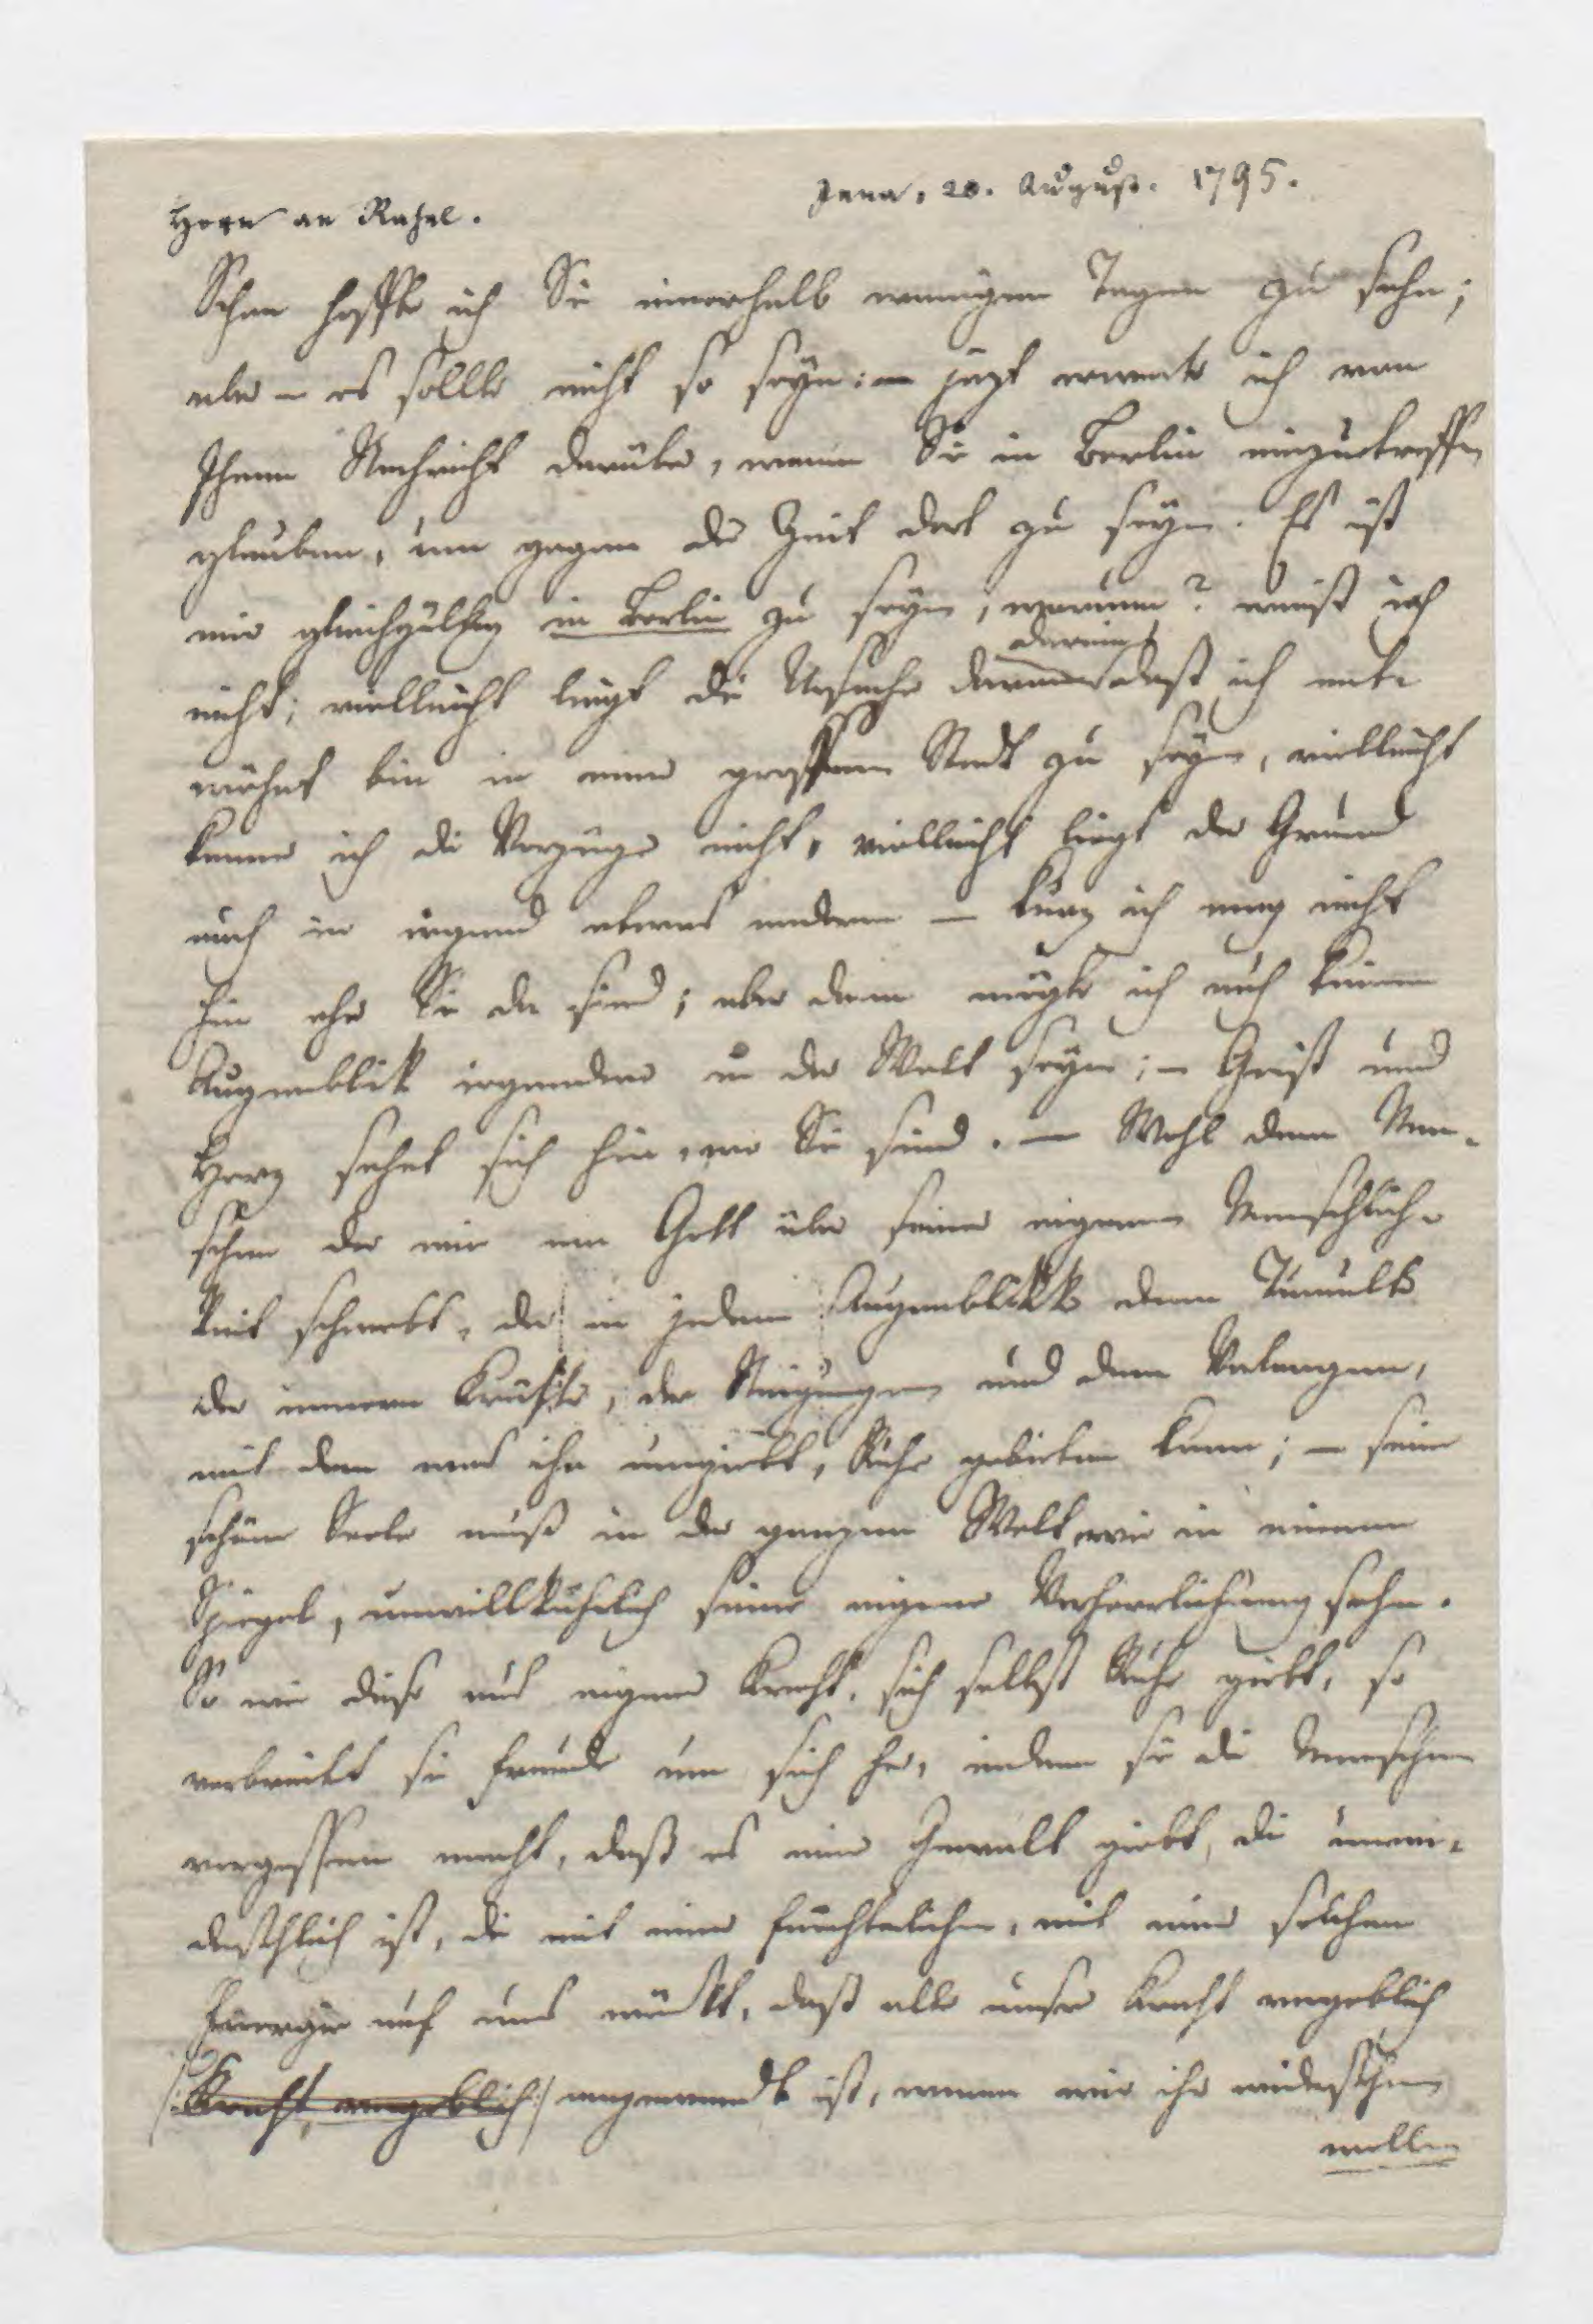 Jena, 20. August. 1795.
Horn an Rahel.
Schon hoffte ich Sie innerhalb wenigen Tagen zu sehn;
aber – es sollte nicht so seyn: – jezt erwarte ich von
Ihnen Nachricht darüber, wann Sie in Berlin einzutreffen
glauben, um gegen die Zeit dort zu seyn. Es ist
mir gleichgültig in Berlin zu seyn, warum? weiß ich
nicht; vielleicht liegt die Ursache darinn daß ich ent-
wöhnt bin in einer grossen Stadt zu seyn, vielleicht
kenne ich die Vorzüge nicht, vielleicht liegt der Grund
auch in irgend etwas anderm – kurz ich mag nicht
hin ehe Sie da sind; aber dann mögte ich auch keinen
Augenblik irgendwo in der Welt seyn; – Geist und
Herz sehnt sich hin, wo Sie sind. – Wohl dem Men-
schen der wie ein Gott über seine eigenen Menschlich-
keit schwebt, der in jedem Augenblikk dem Tumulte
der innern Kräfte, der Neigungen und dem Verlangen,
mit dem was ihn umgiebt, Ruhe gebieten kann; – seine
schöne Seele muß in der ganzen Welt wie in einem
Spiegel, unwillkührlich seine eigene Verherrlichung sehn.
So wie diese aus eigner Kraft, sich selbst Ruhe giebt, so
verbreitet sie Freude um sich her, indem sie die Menschen
vergessen macht, daß es eine Gewalt giebt, die unwi-
derstehlich ist, die mit einer fürchterlichen, mit einer solchen
Energie auf uns wirkt, daß alle unsre Kraft vergeblich
Kraft, vergeblich angewandt ist, wenn wir ihr widerstehen
wollen